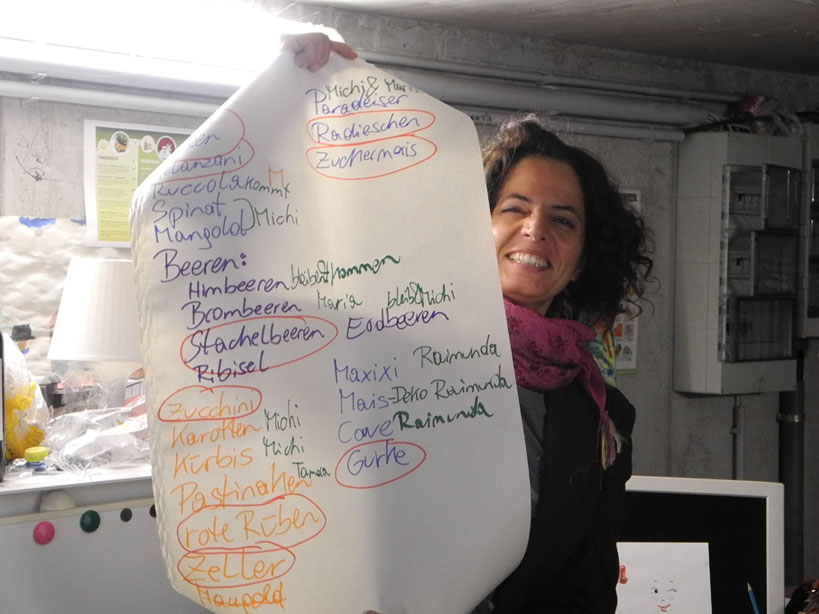 Michi & Mar
Paradeiser
Radieschen
Zuckermais
Ruccola kommt M
Spinat
Mangold Michi
Beeren:
Himbeeren bleibent kommen
Brombeeren Maria bleibt Michi
Stachelbeeren Erdbeeren
Ribisel
Maxixi Raimunda
Mais-Deko Raimunda
Cove Raimunda
Gurke
Zucchini
Karotten Michi
Kürbis Michi
Pastinaken Tamara
rote Rüben
Zeller
Mangold